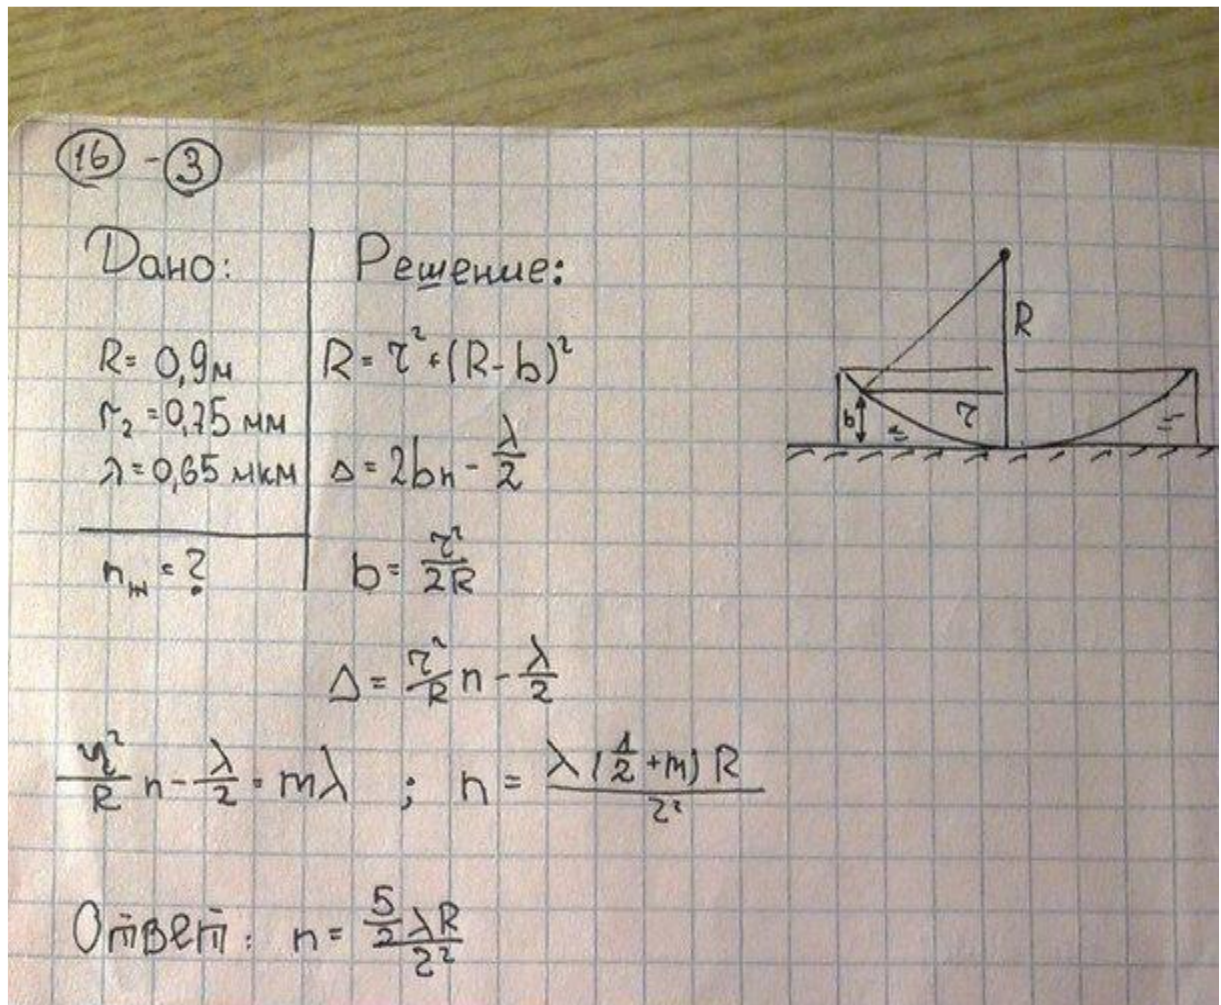 16 - 3
Дано:
Решение:
R = 0,9м
r₂ = 0,75 мм
λ = 0,65 мкм
nж = ?
R = r² + (R - b)²
Δ = 2bn - λ/2
b = r²/2R
Δ = r²/R n - λ/2
r²/R n - λ/2 = mλ ; n = λ(1/2 + m) R / r²
Ответ: n = 5/2 λR / r²
R
r
b